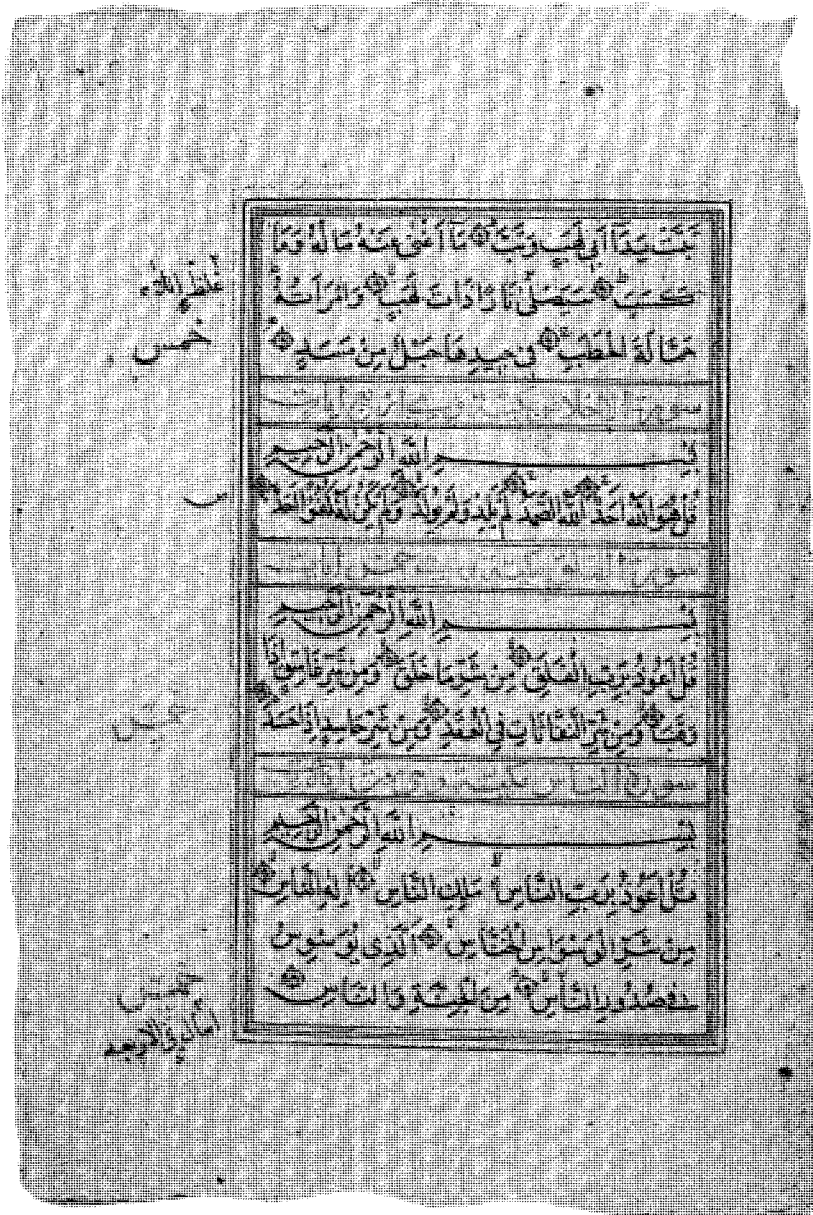 تَبَّتْ يَدَآ اَبِي لَهَبٍ وَتَبَّ مَآ اَغْنٰى عَنْهُ مَالُهُ وَمَا
كَسَبَ سَيَصْلٰى نَارًا ذَاتَ لَهَبٍ وَامْرَاَتُهُ
حَمَّالَةَ الْحَطَبِ فِي جِيدِهَا حَبْلٌ مِنْ مَسَدٍ
سورة الاخلاص
بِسْمِ اللّٰهِ الرَّحْمٰنِ الرَّحِيمِ
قُلْ هُوَ اللّٰهُ اَحَدٌ اَللّٰهُ الصَّمَدُ لَمْ يَلِدْ وَلَمْ يُولَدْ وَلَمْ يَكُنْ لَهُ كُفُوًا اَحَدٌ
سورة الفلق
بِسْمِ اللّٰهِ الرَّحْمٰنِ الرَّحِيمِ
قُلْ اَعُوذُ بِرَبِّ الْفَلَقِ مِنْ شَرِّ مَا خَلَقَ وَمِنْ شَرِّ غَاسِقٍ اِذَا
وَقَبَ وَمِنْ شَرِّ النَّفَّاثَاتِ فِي الْعُقَدِ وَمِنْ شَرِّ حَاسِدٍ اِذَا حَسَدَ
سورة الناس
بِسْمِ اللّٰهِ الرَّحْمٰنِ الرَّحِيمِ
قُلْ اَعُوذُ بِرَبِّ النَّاسِ مَلِكِ النَّاسِ اِلٰهِ النَّاسِ
مِنْ شَرِّ الْوَسْوَاسِ الْخَنَّاسِ اَلَّذِي يُوَسْوِسُ
فِي صُدُورِ النَّاسِ مِنَ الْجِنَّةِ وَالنَّاسِ
خمس
خمس